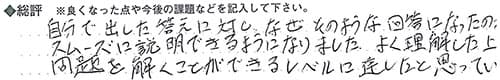 ◆総評 ※良くなった点や今後の課題などを記入して下さい。
自分で出した答えに対し、なぜそのような回答になったの、
スムーズに説明できるようになりました。よく理解した上
問題を解くことができるレベルに達したと思ってい